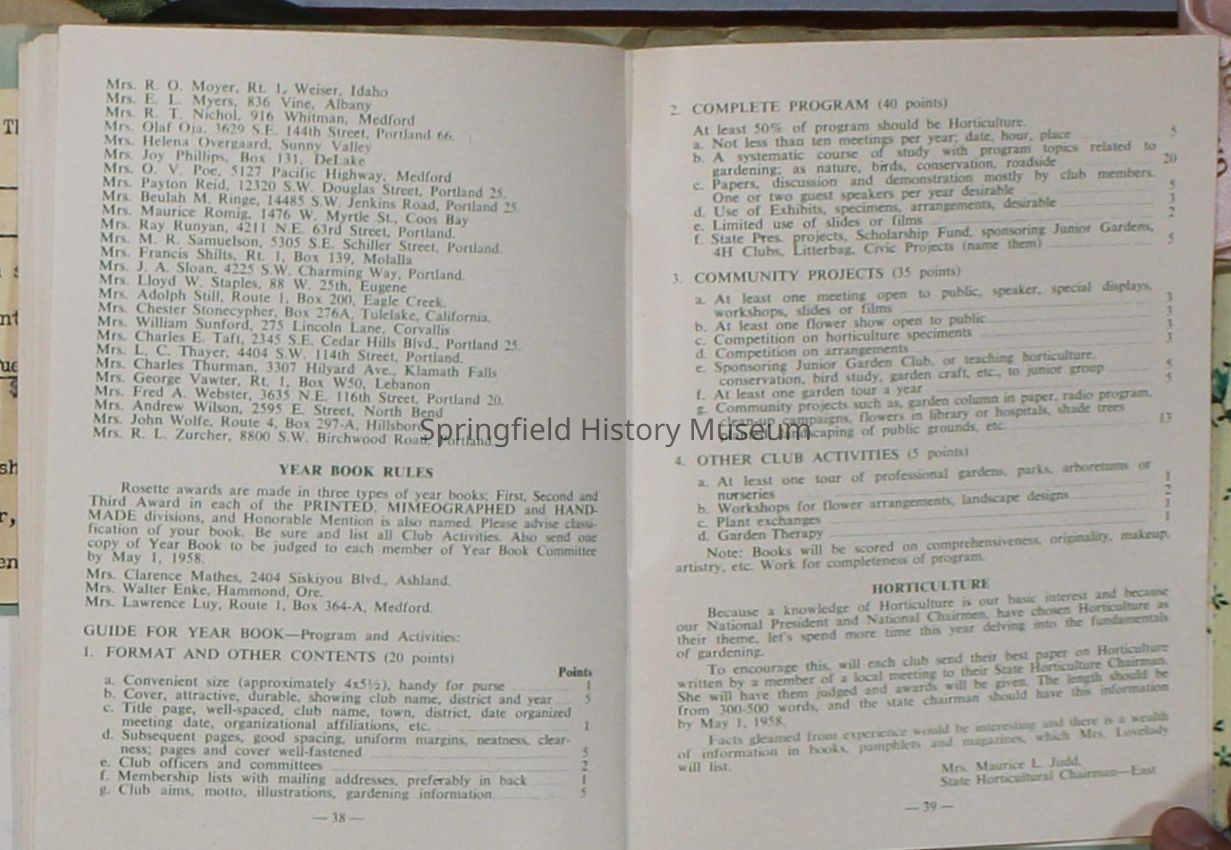 Mrs. R. O. Moyer, Rt. 1, Weiser, Idaho
Mrs. E. L. Myers, 836 Vine, Albany
Mrs. R. T. Nichol, 916 Whitman, Medford
Mrs. Olaf Oja, 3629 S.E. 144th Street, Portland 66.
Mrs. Helena Overgaard, Sunny Valley
Mrs. Joy Phillips, Box 131, DeLake
Mrs. O. V. Poe, 5127 Pacific Highway, Medford
Mrs. Payton Reid, 12320 S.W. Douglas Street, Portland 25.
Mrs. Beulah M. Ringe, 14485 S.W. Jenkins Road, Portland 25.
Mrs. Maurice Romig, 1476 W. Myrtle St., Coos Bay
Mrs. Ray Runyan, 4211 N.E. 63rd Street, Portland.
Mrs. M. R. Samuelson, 5305 S.E. Schiller Street, Portland.
Mrs. Francis Shilts, Rt. 1, Box 139, Molalla
Mrs. J. A. Sloan, 4225 S.W. Charming Way, Portland.
Mrs. Lloyd W. Staples, 88 W. 25th, Eugene
Mrs. Adolph Still, Route 1, Box 200, Eagle Creek.
Mrs. Chester Stonecypher, Box 276A, Tulelake, California.
Mrs. William Sunford, 275 Lincoln Lane, Corvallis
Mrs. Charles E. Taft, 2345 S.E. Cedar Hills Blvd., Portland 25.
Mrs. L. C. Thayer, 4404 S.W. 114th Street, Portland.
Mrs. Charles Thurman, 3307 Hilyard Ave., Klamath Falls
Mrs. George Vawter, Rt. 1, Box W50, Lebanon
Mrs. Fred A. Webster, 3635 N.E. 116th Street, Portland 20.
Mrs. Andrew Wilson, 2595 E. Street, North Bend
Mrs. John Wolfe, Route 4, Box 297-A, Hillsboro
Mrs. R. L. Zurcher, 8800 S.W. Birchwood Road, Portland
YEAR BOOK RULES
Rosette awards are made in three types of year books; First, Second and
Third Award in each of the PRINTED, MIMEOGRAPHED and HAND-
MADE divisions, and Honorable Mention is also named. Please advise classi-
fication of your book. Be sure and list all Club Activities. Also send one
copy of Year Book to be judged to each member of Year Book Committee
by May 1, 1958.
Mrs. Clarence Mathes, 2404 Siskiyou Blvd., Ashland.
Mrs. Walter Enke, Hammond, Ore.
Mrs. Lawrence Luy, Route 1, Box 364-A, Medford.
GUIDE FOR YEAR BOOK—Program and Activities:
1. FORMAT AND OTHER CONTENTS (20 points)
Points
a. Convenient size (approximately 4x5½), handy for purse 1
b. Cover, attractive, durable, showing club name, district and year 5
c. Title page, well-spaced, club name, town, district, date organized
meeting date, organizational affiliations, etc. 1
d. Subsequent pages, good spacing, uniform margins, neatness, clear-
ness; pages and cover well-fastened 5
e. Club officers and committees 2
f. Membership lists with mailing addresses, preferably in back 1
g. Club aims, motto, illustrations, gardening information 5
— 38 —
2. COMPLETE PROGRAM (40 points)
At least 50% of program should be Horticulture.
a. Not less than ten meetings per year; date, hour, place 5
b. A systematic course of study with program topics related to
gardening; as nature, birds, conservation, roadside 20
c. Papers, discussion and demonstration mostly by club members.
One or two guest speakers per year desirable 5
d. Use of Exhibits, specimens, arrangements, desirable 3
e. Limited use of slides or films 2
f. State Pres. projects, Scholarship Fund, sponsoring Junior Gardens,
4H Clubs, Litterbag, Civic Projects (name them) 5
3. COMMUNITY PROJECTS (35 points)
a. At least one meeting open to public, speaker, special displays,
workshops, slides or films 3
b. At least one flower show open to public 3
c. Competition on horticulture specimens 3
d. Competition on arrangements 3
e. Sponsoring Junior Garden Club, or teaching horticulture,
conservation, bird study, garden craft, etc., to junior group 5
f. At least one garden tour a year 5
g. Community projects such as, garden column in paper, radio program,
clean-up campaigns, flowers in library or hospitals, shade trees
landscaping of public grounds, etc. 13
4. OTHER CLUB ACTIVITIES (5 points)
a. At least one tour of professional gardens, parks, arboretums or
nurseries 1
b. Workshops for flower arrangements, landscape designs 2
c. Plant exchanges 1
d. Garden Therapy 1
Note: Books will be scored on comprehensiveness, originality, makeup,
artistry, etc. Work for completeness of program.
HORTICULTURE
Because a knowledge of Horticulture is our basic interest and because
our National President and National Chairmen, have chosen Horticulture as
their theme, let's spend more time this year delving into the fundamentals
of gardening.
To encourage this, will each club send their best paper on Horticulture
written by a member of a local meeting to their State Horticulture Chairman.
She will have them judged and awards will be given. The length should be
from 300-500 words, and the state chairman should have this information
by May 1, 1958.
Facts gleamed from experience would be interesting and there is a wealth
of information in books, pamphlets and magazines, which Mrs. Lovelady
will list.
Mrs. Maurice L. Judd,
State Horticultural Chairman—East
— 39 —
Springfield History Museum